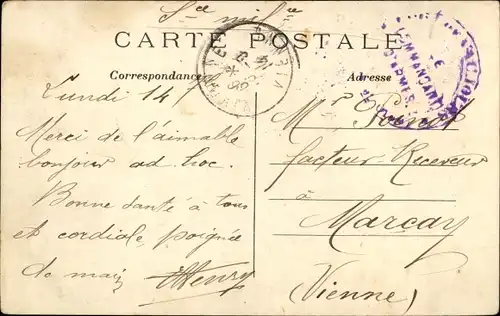 CARTE POSTALE
Correspondance
Adresse
Lundi 14
Merci de l'aimable
bonjour ad hoc.
Bonne santé à tous
et cordiale poignée
de main Henry
Mr
facteur-Receveur
à
Marcay
(Vienne)
VIENNE